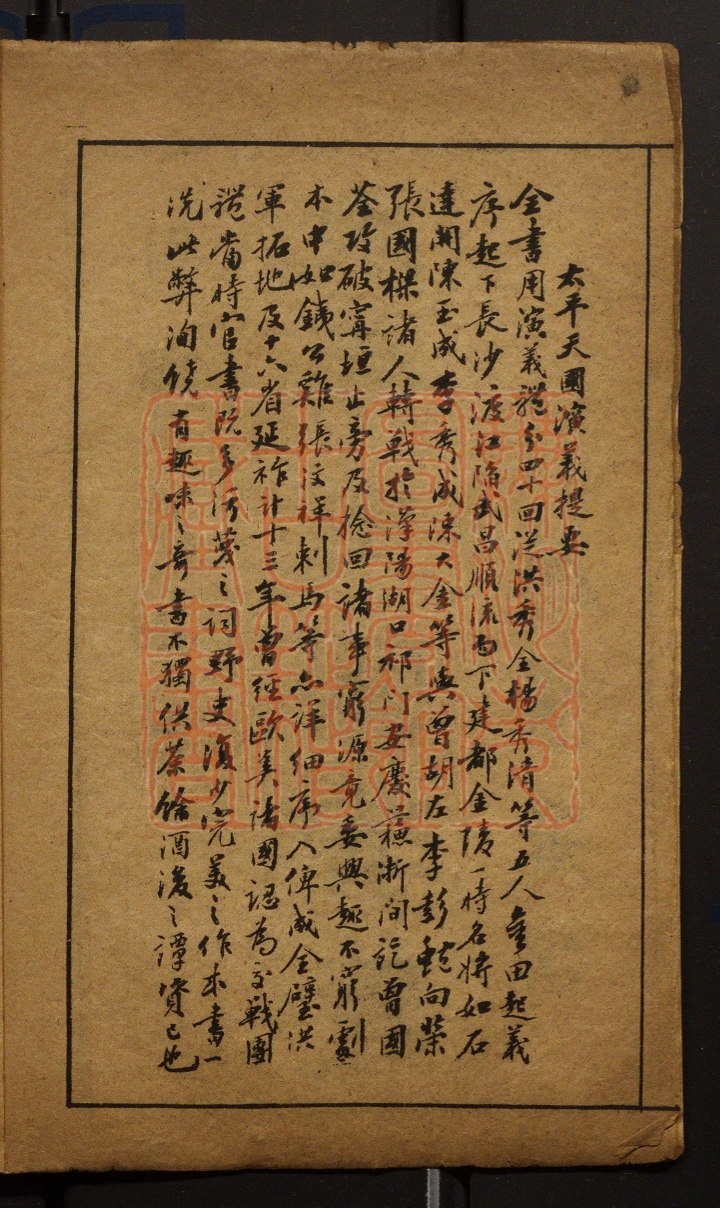 太平天國演義提要
全書用演義體分四十回從洪秀全楊秀清等五人金田起義
序起下長沙渡江陷武昌順流而下建都金陵一時名將如石
達開陳玉成李秀成陳大金等與曾胡左李彭鮑向榮
張國樑諸人轉戰於漢陽湖口祁門安慶蘇浙間訖曾國
荃攻破寧垣止旁及捻回諸事窮源竟委興趣不窮劇
本中如鐵公雞張汶祥刺馬等亦詳細序入俾成全璧洪
軍拓地及十六省延祚計十三年曾經歐美諸國認為交戰團
體當時官書既多污衊之詞野史復少完美之作本書一
洗此弊洵饒有趣味之奇書不獨供茶餘酒後之譚資已也